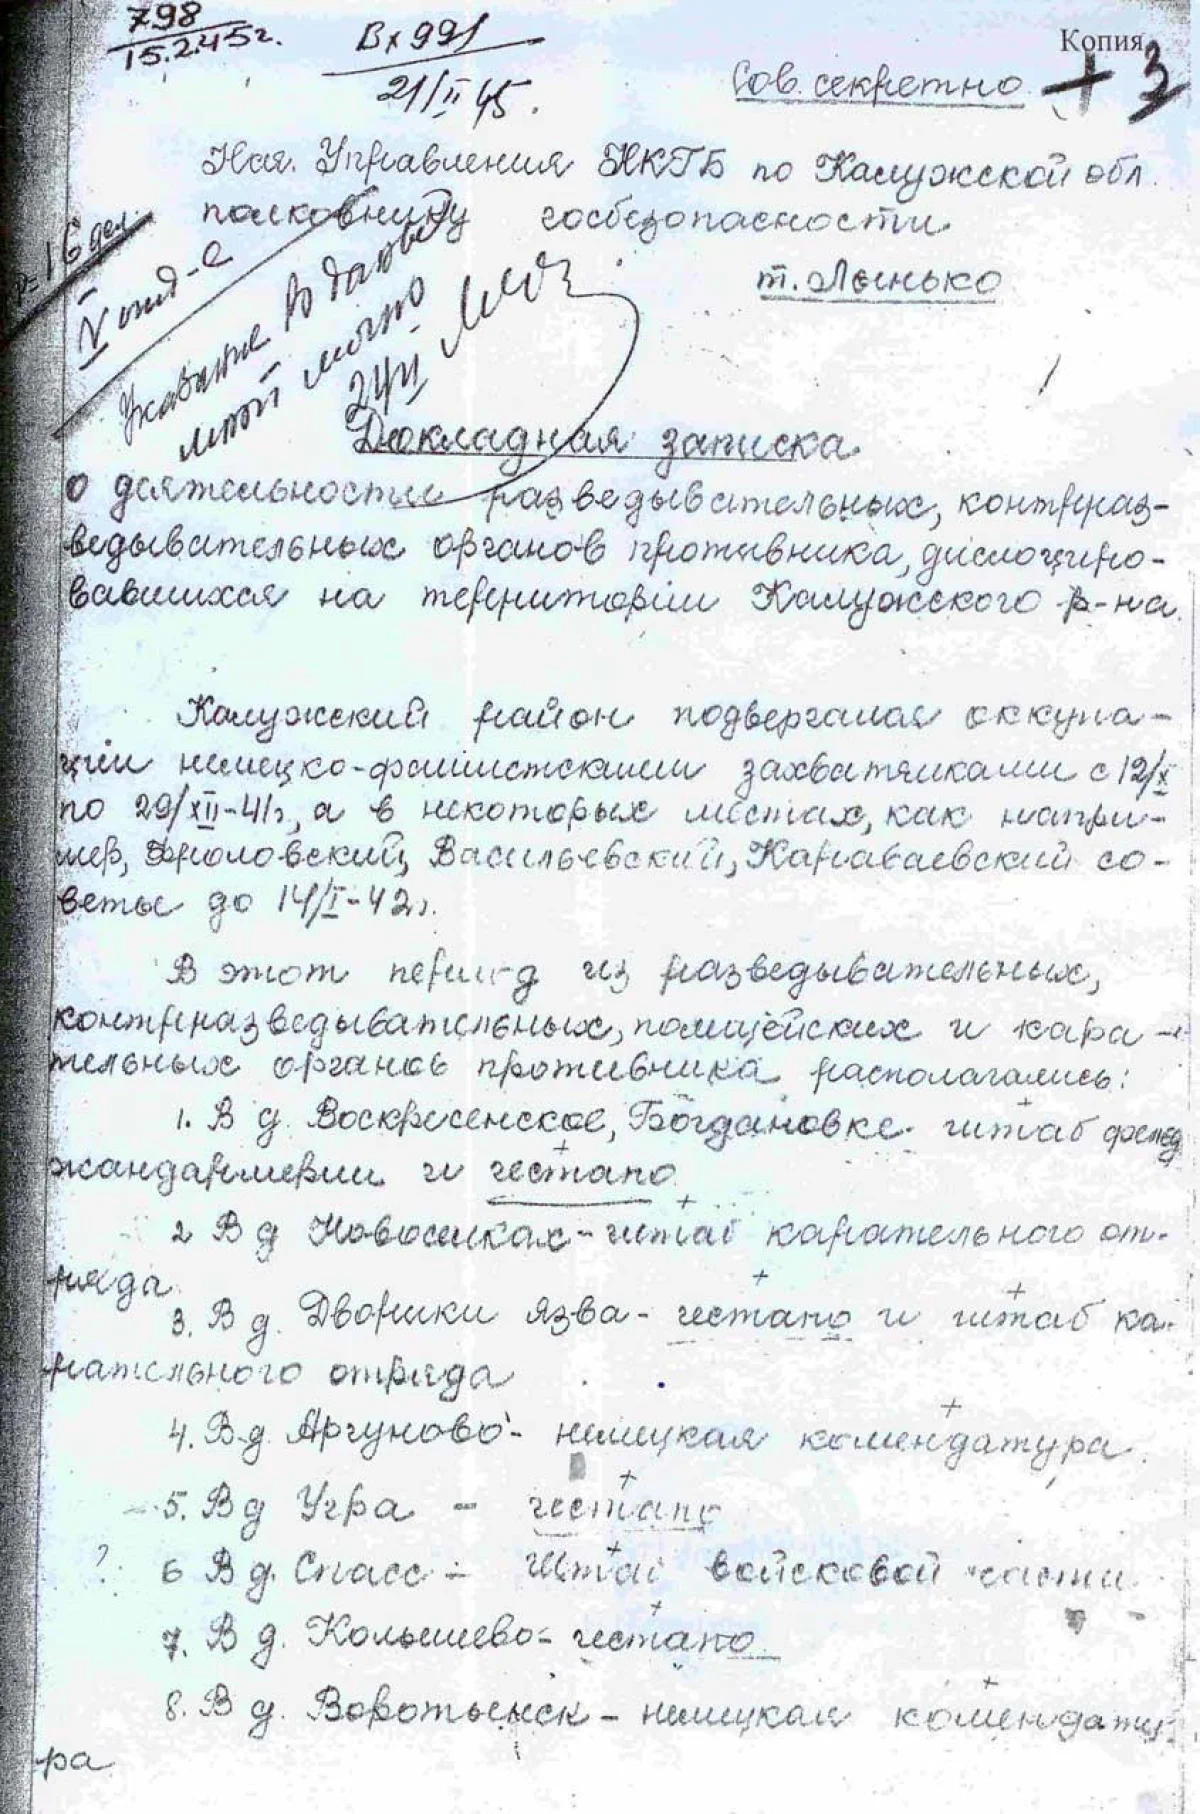 798
15.2.45г.
Вх 991
21/II 45.
Копия
Сов. секретно
3
Нач. Управления НКГБ по Калужской обл.
полковнику госбезопасности
т. Лынько
16 дел.
V отд-е
Указание
мной
24/II
Докладная записка
о деятельности разведывательных, контрраз-
ведывательных органов противника, дислоциро-
вавшихся на территории Калужского р-на
Калужский район подвергался оккупа-
ции немецко-фашистскими захватчиками с 12/X
по 29/XII-41г, а в некоторых местах, как напри-
мер, Фроловский, Васильевский, Караваевский со-
веты до 14/I-42г.
В этот период из разведывательных,
контрразведывательных, полицейских и кара-
тельных органов противника располагались:
1. В д. Воскресенское, Богдановке штаб фельд
жандармерии и гестапо
2 В д Новоселках - штаб карательного от-
ряда
3. В д. Дворики язва - гестапо и штаб ка-
рательного отряда
4. В д. Аргуново - немецкая комендатура
5. В д Угра - гестапо
? 6 В д. Спасс - штаб войсковой части
7. В д. Колышево - гестапо
8. В д. Воротынск - немецкая комендату
ра